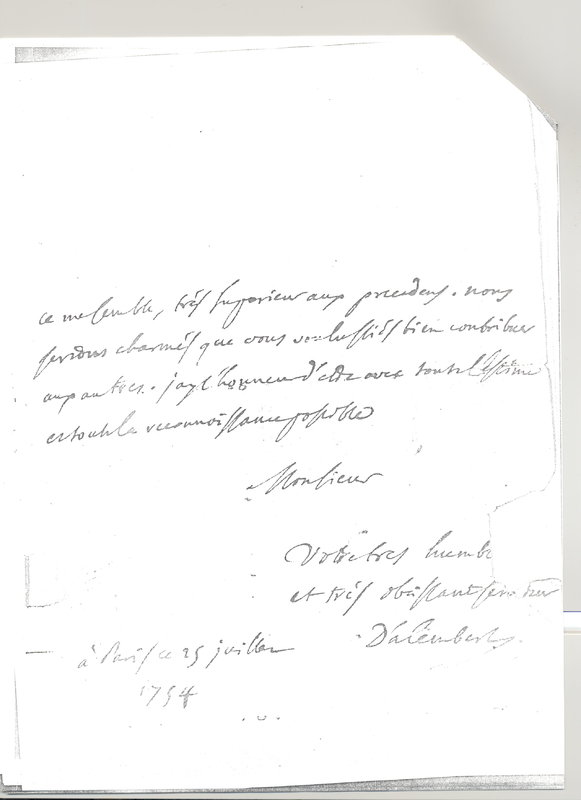 ce me semble, très superieur aux precedens. nous
serions charmés que vous voulussiés bien contribuer
aux autres. j'ay l'honneur d'etre avec toute l'estime
et toute la reconnoissance possible
Monsieur
Votre tres humb
et très obeissant serviteur
D'alembert
à Paris ce 25 juillet
1754